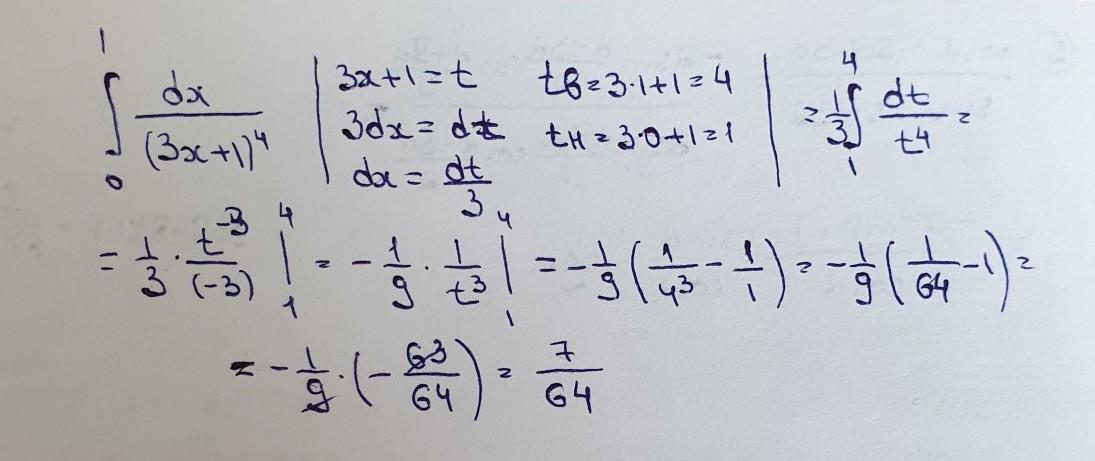 ∫₀¹ dx/(3x+1)⁴ | 3x+1=t tв=3·1+1=4 | = 1/3 ∫₁⁴ dt/t⁴ =
3dx=dt tн=3·0+1=1
dx=dt/3
= 1/3 · t⁻³/(-3) |₁⁴ = -1/9 · 1/t³ |₁⁴ = -1/9 (1/4³ - 1/1) = -1/9 (1/64 - 1) =
= -1/9 · (-63/64) = 7/64